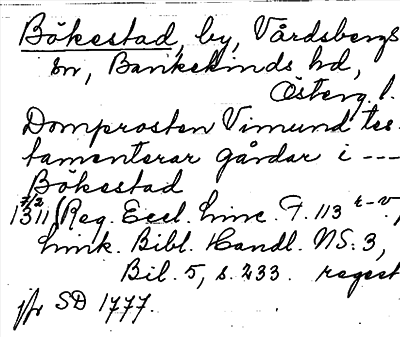 Bökestad, by, Vårdsbergs
sn, Bankekinds hd,
Österg. l.
Domprosten Vimund tes-
tamenterar gårdar i ---
Bökestad
7/2
1311 (Reg. Eccl. Linc. F. 113 r-v,
Link. Bibl. Handl. NS: 3,
Bil. 5, s. 233. regest
jfr SD 1777.